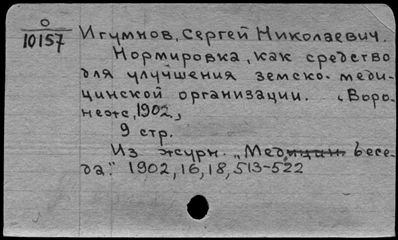 О
10157
Игумнов, Сергей Николаевич.
Нормировка, как средство
для улучшения земско-меди-
цинской организации. (Воро-
неж, 1902,)
9 стр.
Из журн. „Медицин. бесе-
да." 1902, 16, 18, 513-522